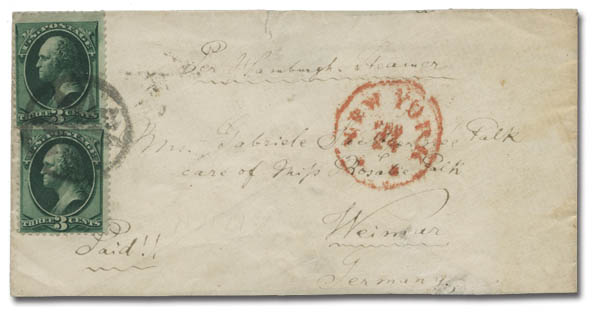 U.S. POSTAGE
THREE 3 CENTS
THREE 3 CENTS
Per Hamburgh steamer
NEW YORK
24
Mrs. Gabriele Falk
care of Miss Rosalie
Weimar
Paid!!
Germany.